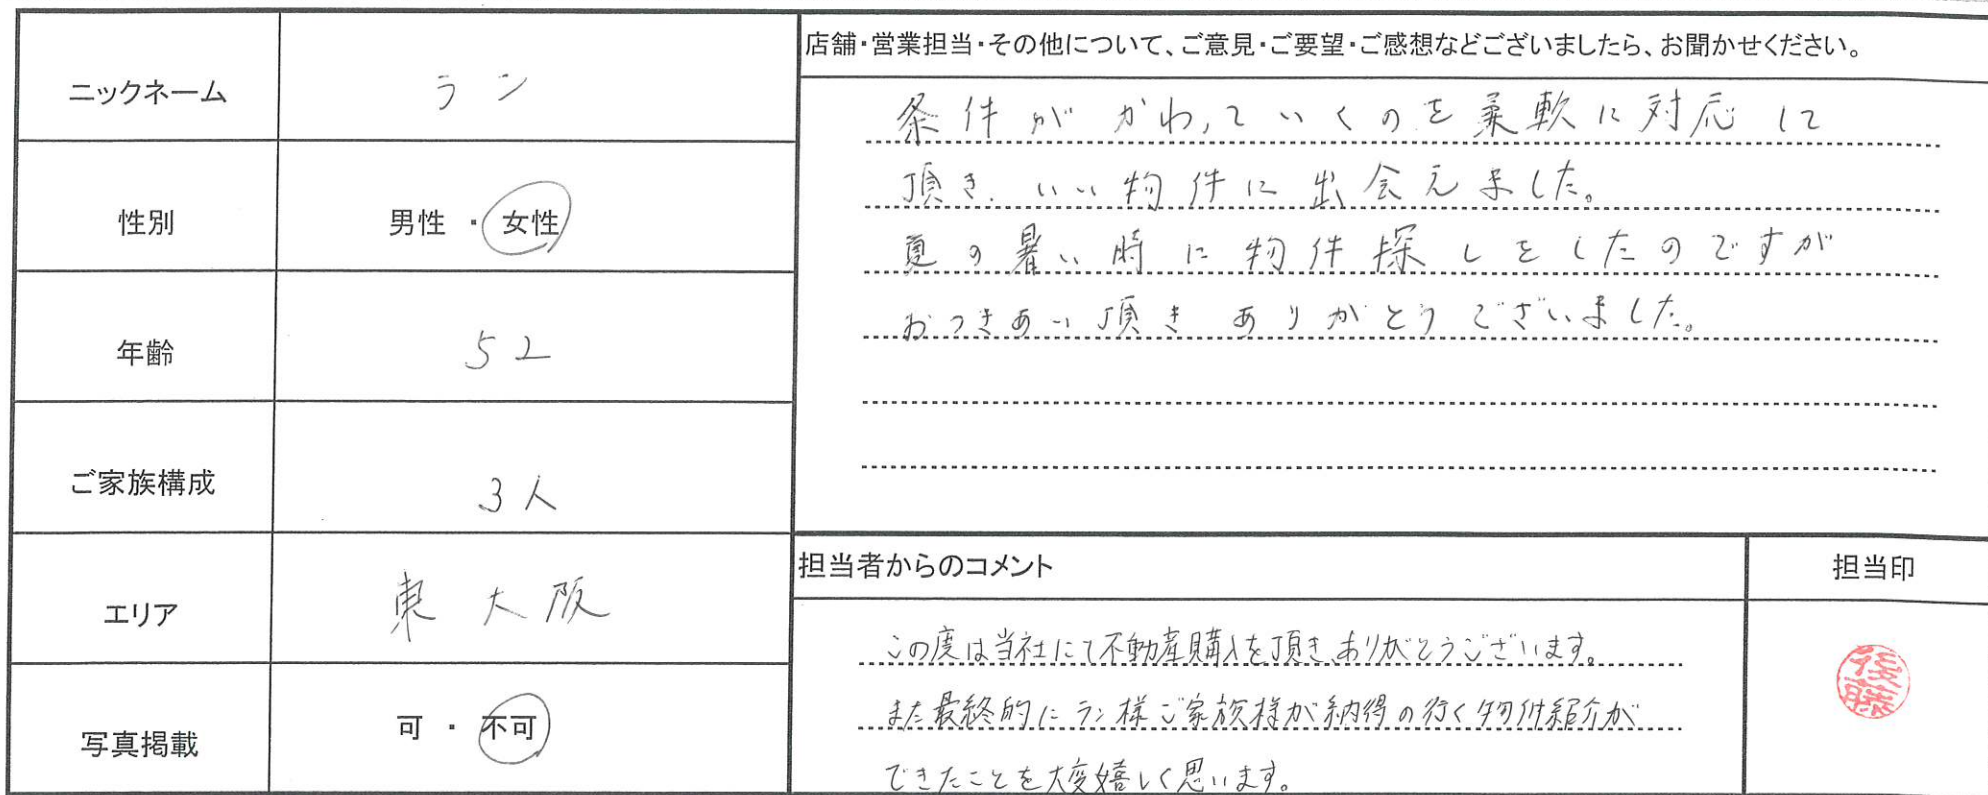 ニックネーム ラン
性別 男性 ・ 女性
年齢 52
ご家族構成 3人
エリア 東大阪
写真掲載 可 ・ 不可
店舗・営業担当・その他について、ご意見・ご要望・ご感想などございましたら、お聞かせください。
条件がかわっていくのを柔軟に対応して
頂き、いい物件に出会えました。
夏の暑い時に物件探しをしたのですが
おつきあい頂きありがとうございました。
担当者からのコメント
この度は当社にて不動産購入を頂き、ありがとうございます。
また最終的にラン様ご家族様が納得の行く物件紹介が
できたことを大変嬉しく思います。
担当印
後藤